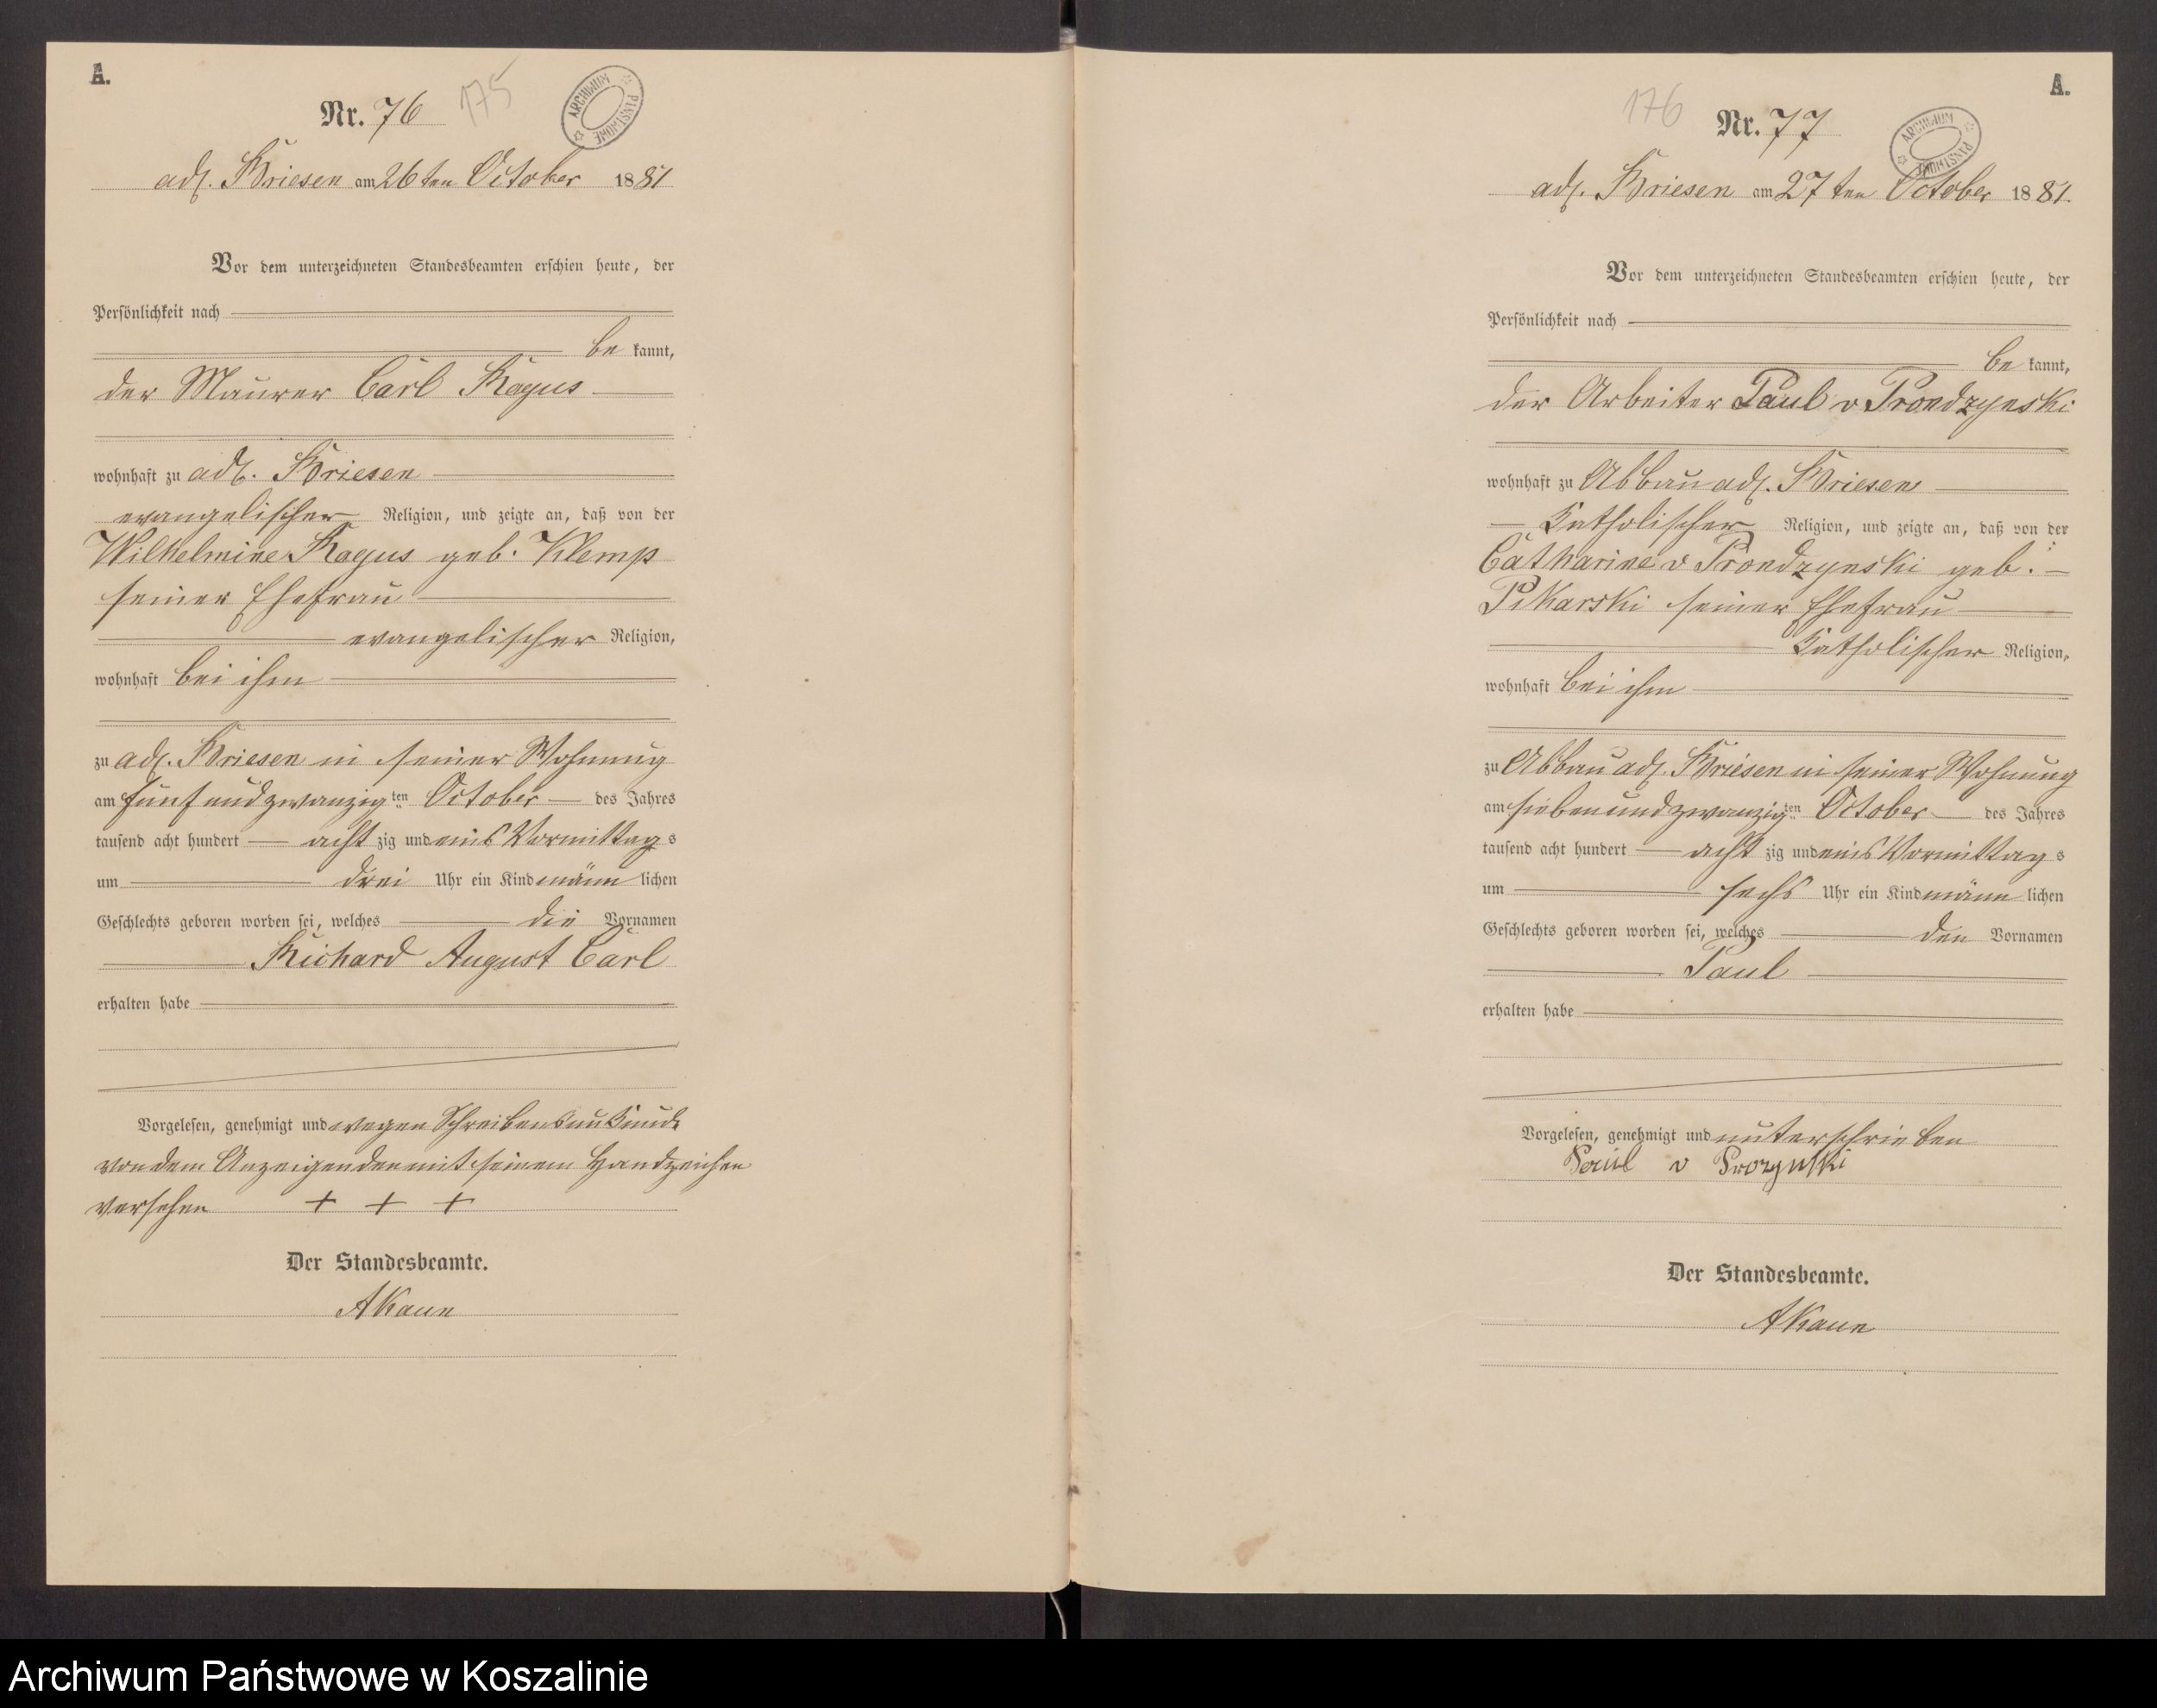 A.
Nr. 76 175
ARCHIWUM PAŃSTWOWE
adl. Briesen am 26ten October 1881
Vor dem unterzeichneten Standesbeamten erschien heute, der
Persönlichkeit nach
be kannt,
der Maurer Carl Ragus
wohnhaft zu adl. Briesen
evangelischer Religion, und zeigte an, daß von der
Wilhelmine Ragus geb. Klemp
seiner Ehefrau
evangelischer Religion,
wohnhaft bei ihm
zu adl. Briesen in seiner Wohnung
am fünf und zwanzig ten October des Jahres
tausend acht hundert acht zig und eins Vormittag s
um drei Uhr ein Kind männ lichen
Geschlechts geboren worden sei, welches die Vornamen
Richard August Carl
erhalten habe
Vorgelesen, genehmigt und wegen Schreibensunkunde
von dem Anzeigenden mit seinem Handzeichen
versehen + + +
Der Standesbeamte.
A.
176 Nr. 77
ARCHIWUM PAŃSTWOWE
adl. Briesen am 27ten October 1881.
Vor dem unterzeichneten Standesbeamten erschien heute, der
Persönlichkeit nach
be kannt,
der Arbeiter Paul v Prondzynski
wohnhaft zu Abbau adl. Briesen
Katholischer Religion, und zeigte an, daß von der
Catharine v Prondzynski geb.
Pikarski seiner Ehefrau
Katholischer Religion,
wohnhaft bei ihm
zu Abbau adl. Briesen in seiner Wohnung
am sieben und zwanzig ten October des Jahres
tausend acht hundert acht zig und eins Vormittag s
um sechs Uhr ein Kind männ lichen
Geschlechts geboren worden sei, welches den Vornamen
Paul
erhalten habe
Vorgelesen, genehmigt und unterschrieben
Paul v
Der Standesbeamte.
Archiwum Państwowe w Koszalinie